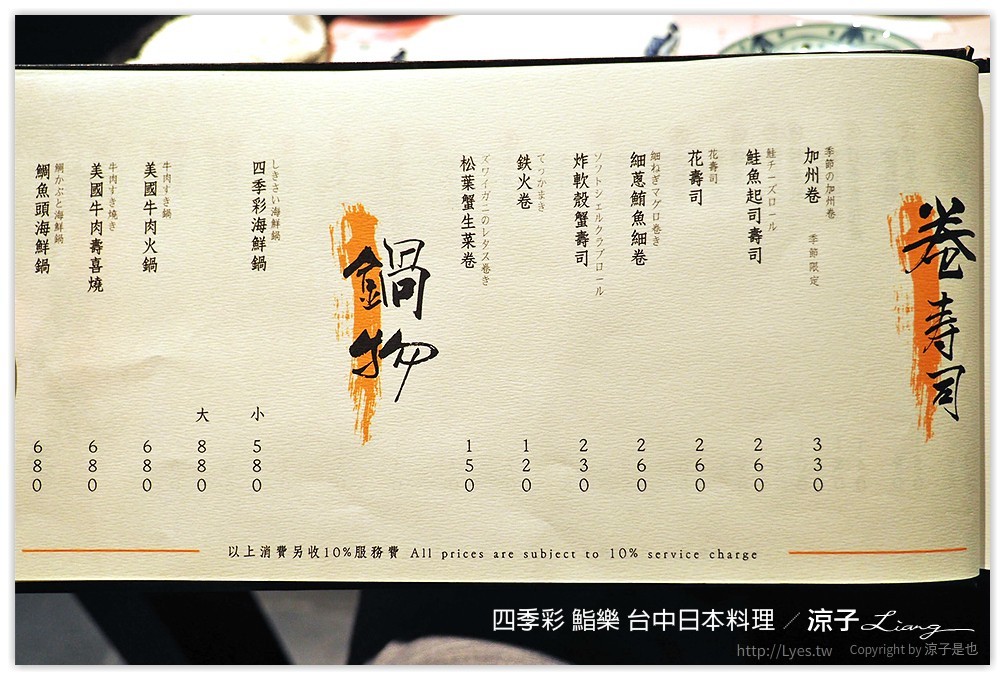 卷寿司
季節の加州卷
加州卷 季節限定 330
鮭チーズロール
鮭魚起司壽司 260
花壽司
花壽司 260
細ねぎマグロ巻き
細蔥鮪魚細卷 260
ソフトシェルクラブロール
炸軟殼蟹壽司 230
てっかまき
鉄火卷 120
ズワイガニのレタス巻き
松葉蟹生菜卷 150
鍋物
しきさい海鮮鍋
四季彩海鮮鍋 小 580
大 880
牛肉すき鍋
美國牛肉火鍋 680
牛肉すき燒き
美國牛肉壽喜燒 680
鯛かぶと海鮮鍋
鯛魚頭海鮮鍋 680
以上消費另收10%服務費 All prices are subject to 10% service charge
四季彩 鮨樂 台中日本料理 ／ 涼子 Liang
http://Lyes.tw Copyright by 涼子是也